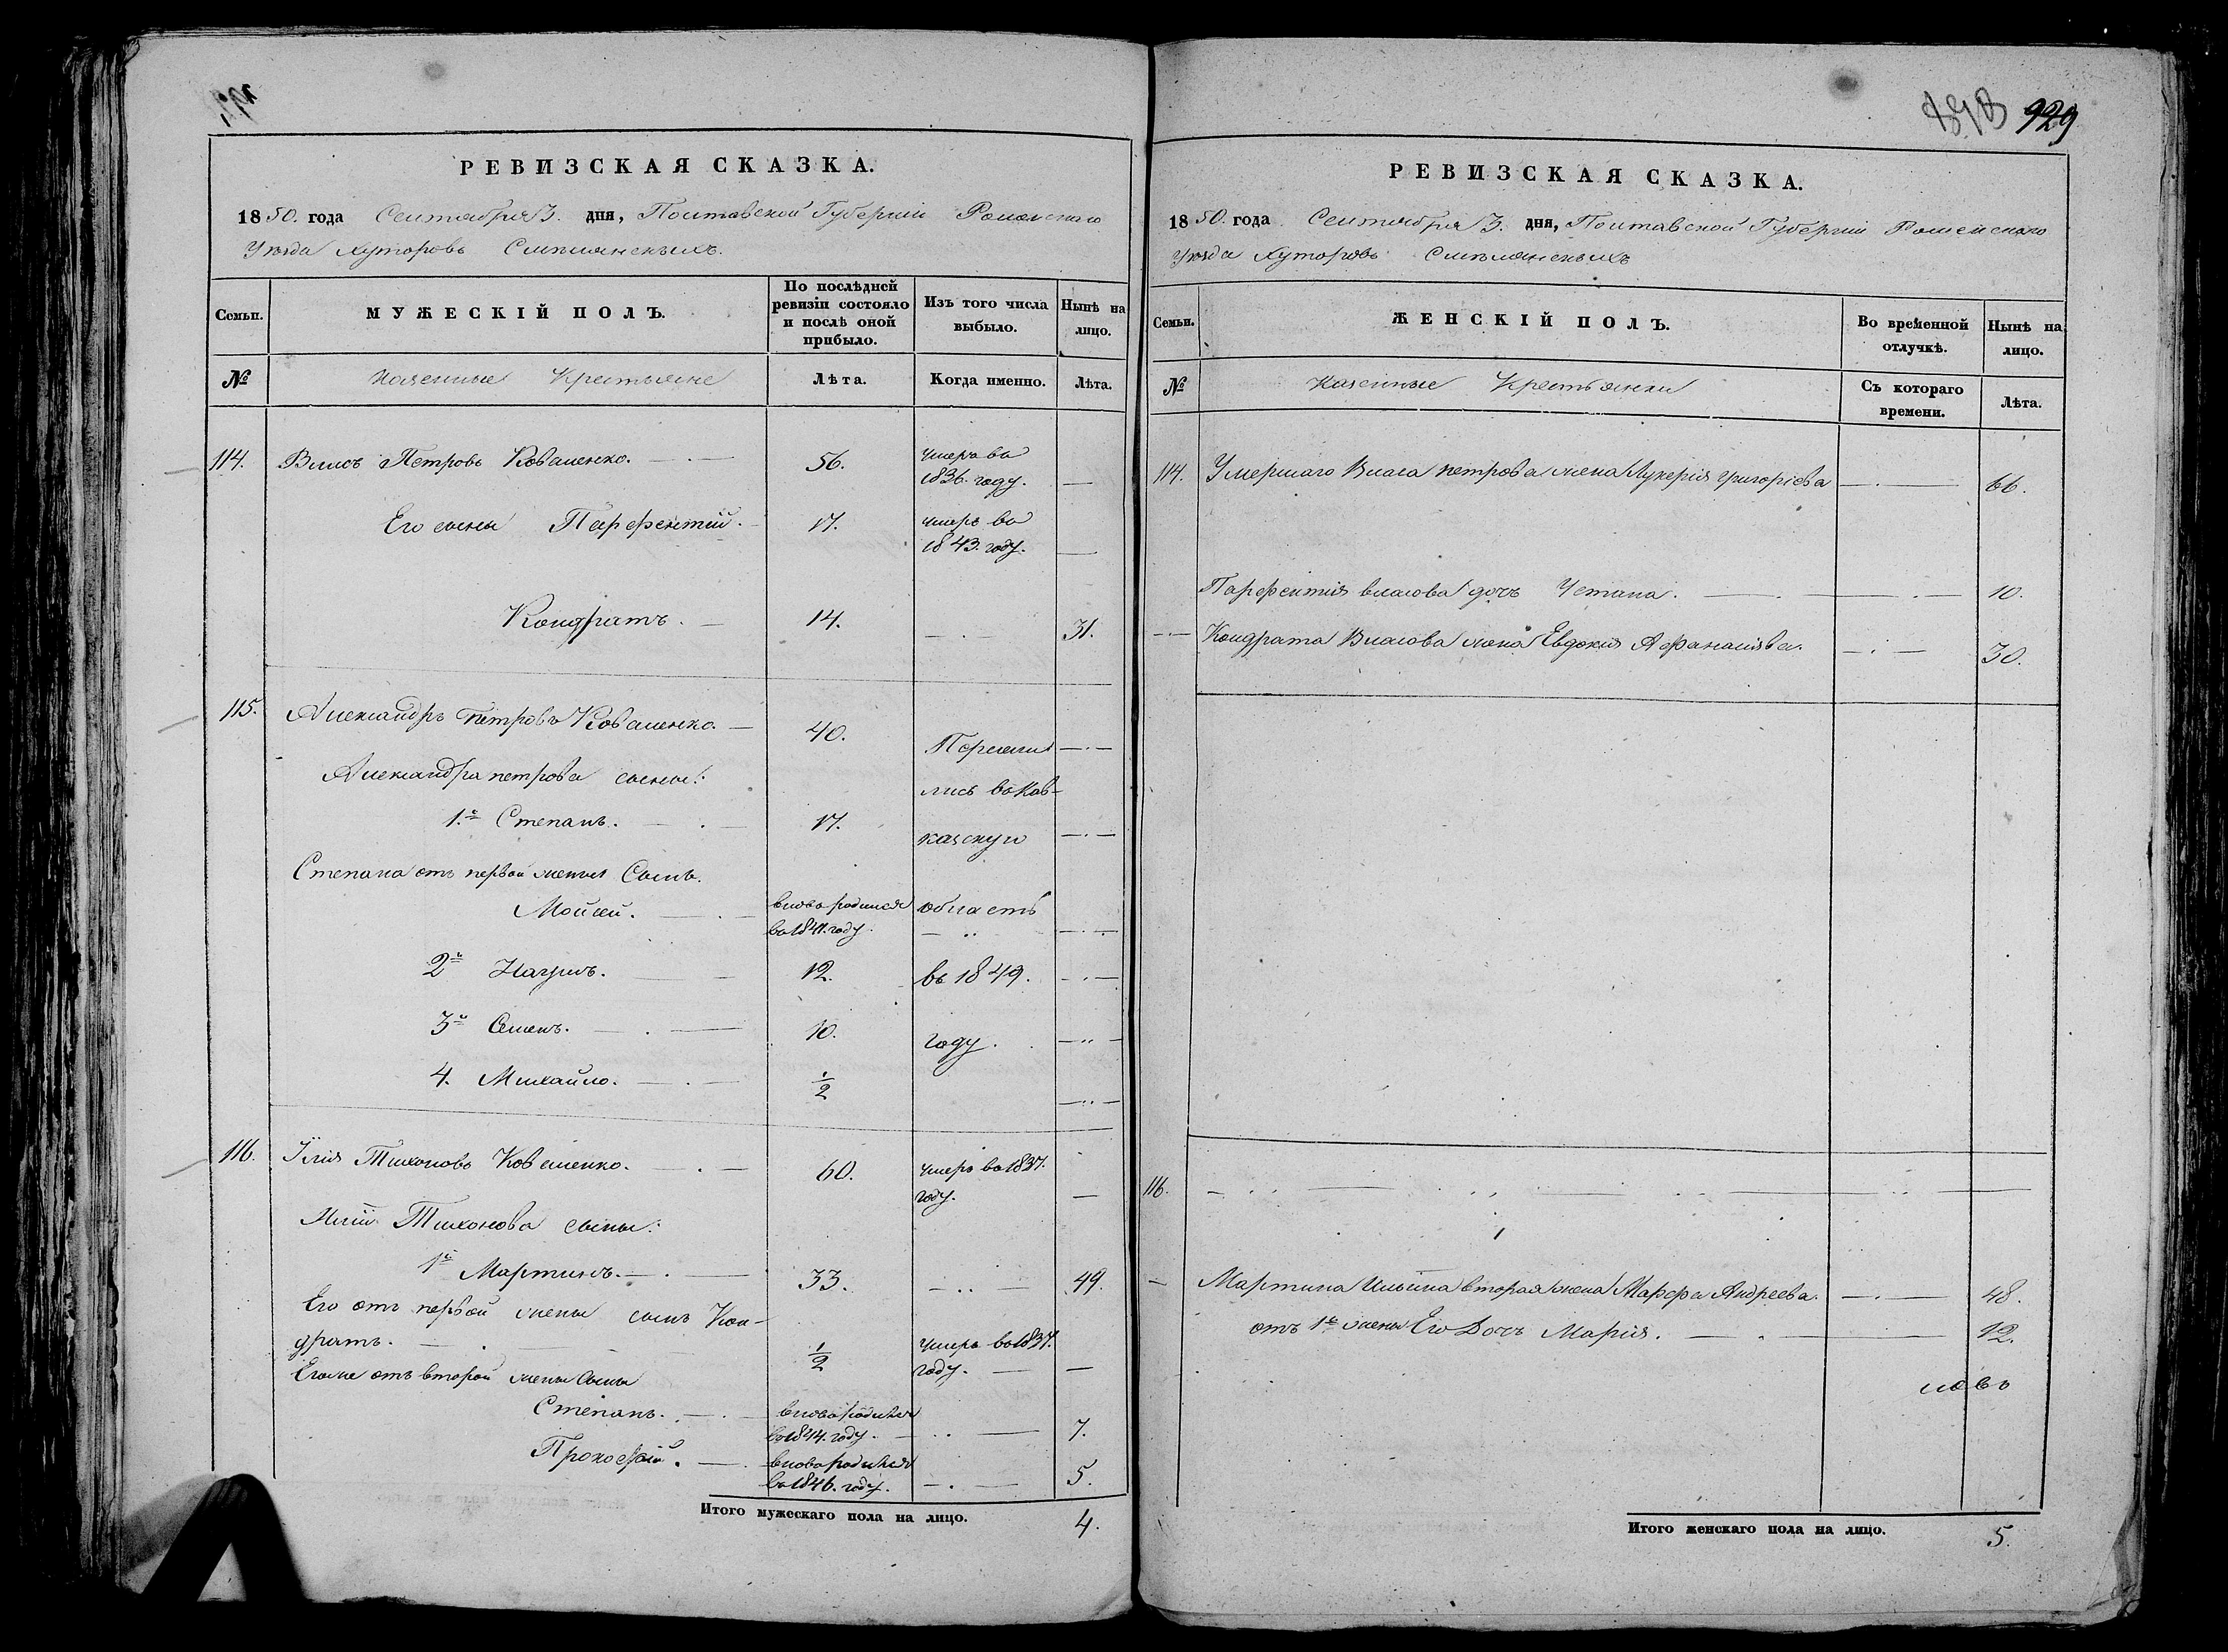 РЕВИЗСКАЯ СКАЗКА.
1850. года Сентября 3. дня, Полтавской Губерніи Роменскаго
Уѣзда Хуторовъ Смѣлянскихъ.
Семьи.
МУЖЕСКІЙ ПОЛЪ.
По послѣдней ревизіи состояло и послѣ оной прибыло.
Изъ того числа выбыло.
Нынѣ на лицо.
№
Казенные Крестьяне
Лѣта.
Когда именно.
Лѣта.
114. Власъ Петровъ Коваленко. 56. умеръ въ
1836. году. —
Его сыны Парфентій. 17. умеръ въ
1843. году. —
Кондратъ. 14. — 31.
115. Александръ Петровъ Коваленко. — 40. Пересели —
Александра петрова сыны: лись въ Кав-
1й Степанъ. 17. казскую —
Степана отъ первой жены Сынъ.
Мойсей. вновь родился область
въ 1841. году. —
2й Наумъ. 12. въ 1849. —
3й Семенъ. 10. году. —
4. Михайло. 1/2 —
116. Ілія Тихоновъ Коваленко. 60. умеръ въ 1837.
году. —
Иліи Тихонова сыны:
1й Мартинъ. 33. — 49.
Его отъ первой жены сынъ Кон-
дратъ. 1/2 умеръ въ 1837.
году. —
Егоже отъ второй жены Сыны
Степанъ. вновь родился
въ 1844. году. — 7.
Прокофій. вновь родился
въ 1846. году. — 5.
Итого мужескаго пола на лицо. 4.
929
РЕВИЗСКАЯ СКАЗКА.
1850. года Сентября 3. дня, Полтавской Губерніи Роменскаго
Уѣзда Хуторовъ Смѣлянскихъ
Семьи.
ЖЕНСКІЙ ПОЛЪ.
Во временной отлучкѣ.
Нынѣ на лицо.
№
Казенные Крестьянки
Съ котораго времени.
Лѣта.
114. Умершаго Власа петрова жена Лукерія григоріева — 66.
Парфентія власова дочь — 10.
Кондрата Власова жена Евдокія Афанасіева. — 30.
116. —
Мартина Ильина вторая жена Марфа Андреева. — 48.
отъ 1й жены Его Дочь Марія. — 12.
Итого женскаго пола на лицо. 5.